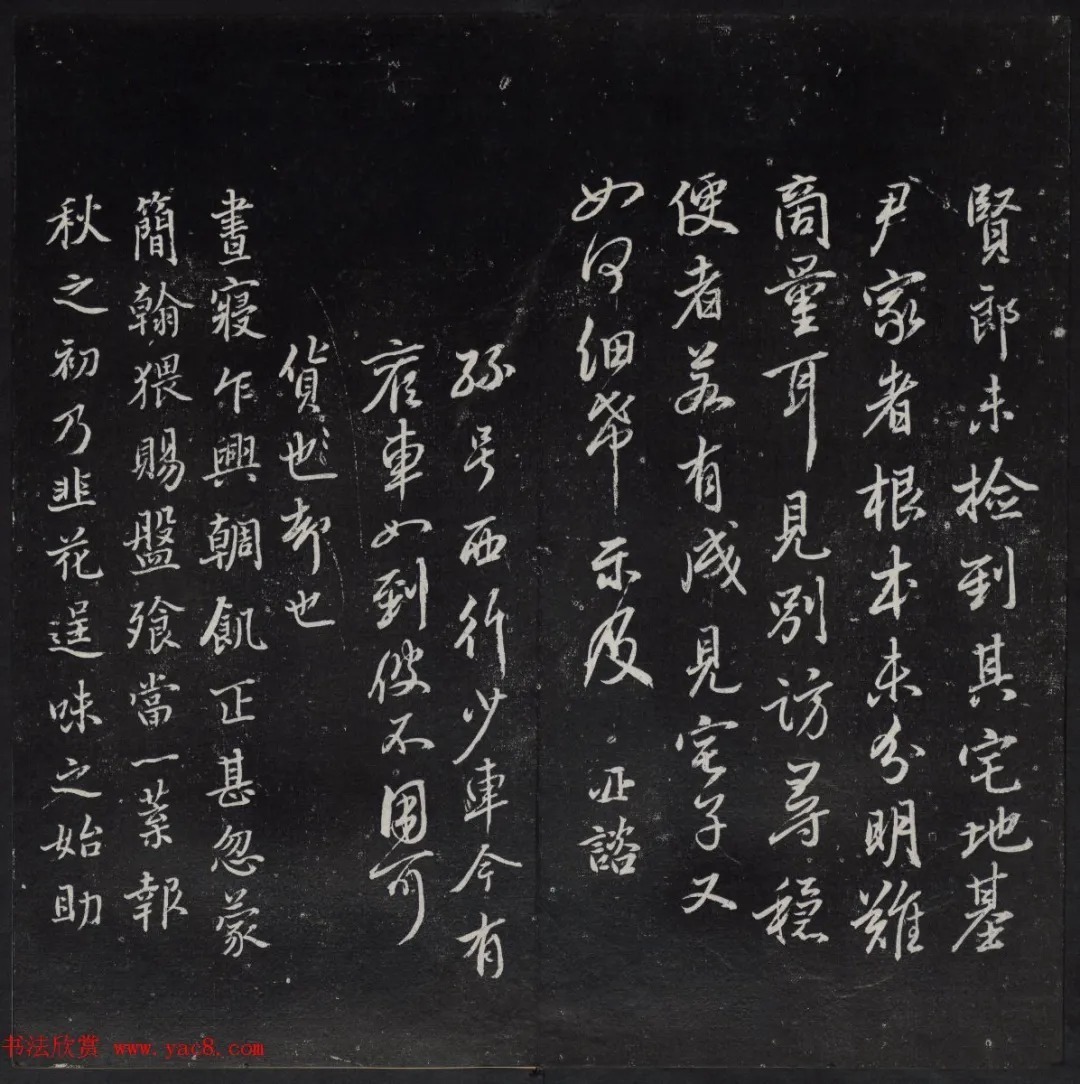 賢郎未撿到其宅地基
尹家者根本未分明難
商量耳見別訪尋穩
便者若有成見宅子又
如何細希示及 諮
號西行少車今有
宿車如到彼不用可
貨也却也
晝寢乍興輖飢正甚忽蒙
簡翰猥賜盤飧當一葉報
秋之初乃韭花逞味之始助
书法欣赏 www.yac8.com